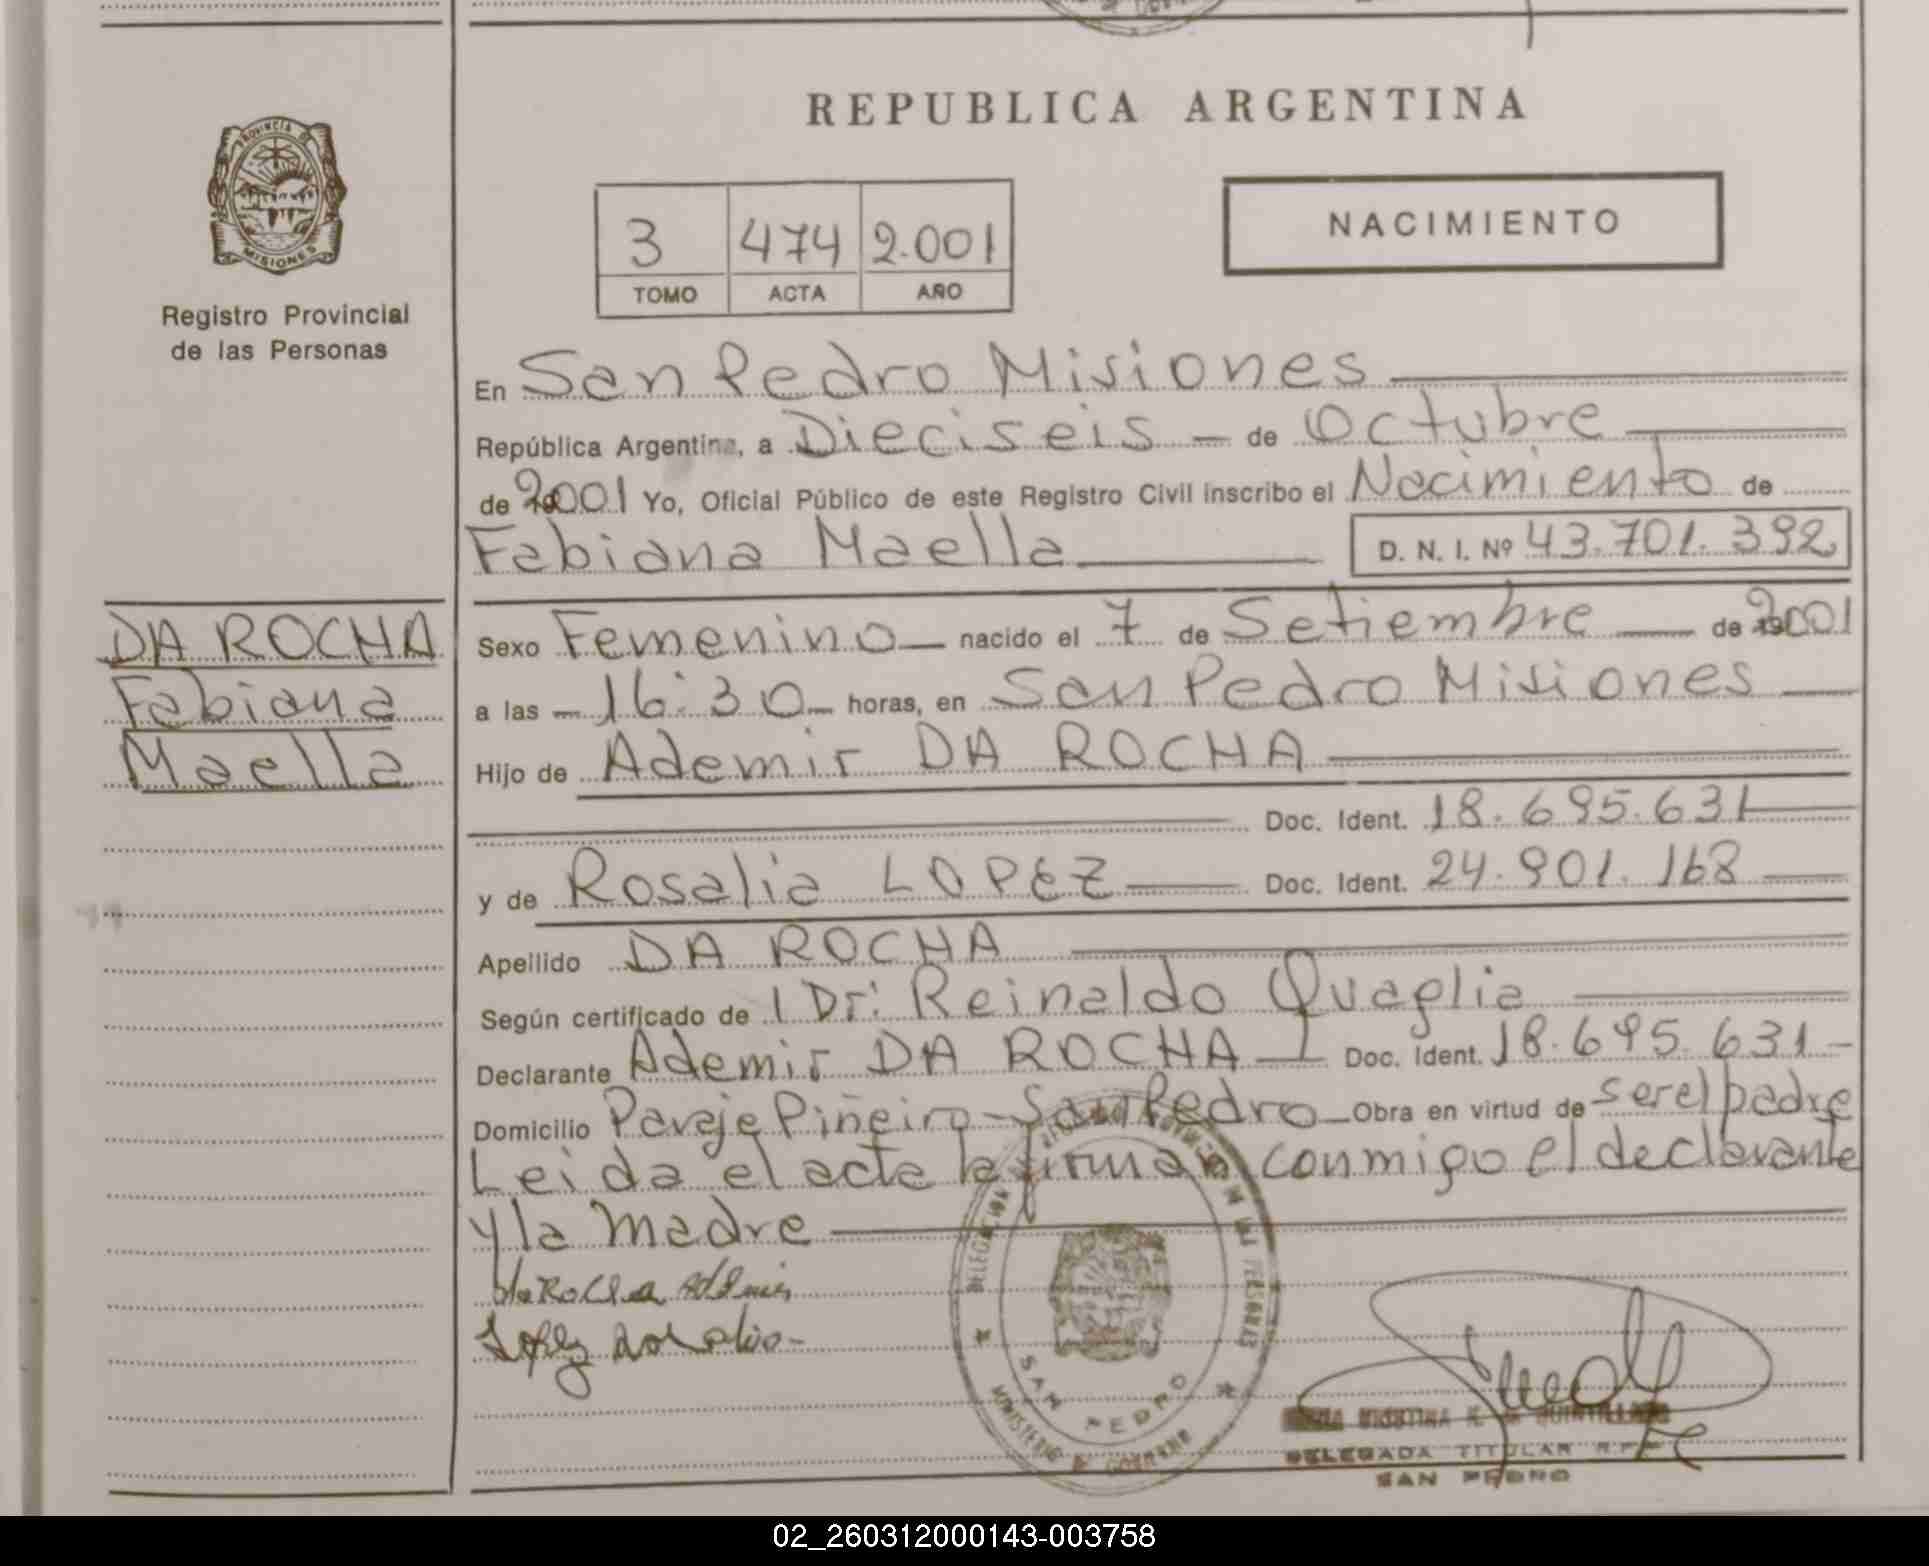 REPUBLICA ARGENTINA
PROVINCIA DE
MISIONES
Registro Provincial
de las Personas
3 474 2.001
TOMO ACTA AÑO
NACIMIENTO
En San Pedro Misiones
República Argentina, a Dieciseis de Octubre
de 2001 Yo, Oficial Público de este Registro Civil inscribo el Nacimiento de
Fabiana Maella D. N. I. Nº 43.701.392
DA ROCHA
Fabiana
Maella
Sexo Femenino nacido el 7 de Setiembre de 2001
a las 16:30 horas, en San Pedro Misiones
Hijo de Ademir DA ROCHA
Doc. Ident. 18.695.631
y de Rosalia LOPEZ Doc. Ident. 24.901.168
Apellido DA ROCHA
Según certificado de l Dr: Reinaldo Quaglia
Declarante Ademir DA ROCHA Doc. Ident. 18.695.631
Domicilio Paraje Piñeiro - San Pedro Obra en virtud de ser el padre
Leida el acta la firman conmigo el declarante
y la madre
da Rocha Ademir
Lopez Rosalia
DELEGACION
DE LAS PERSONAS
SAN PEDRO
MINISTERIO DE GOBIERNO
DELEGADA TITULAR
SAN PEDRO
02_260312000143-003758